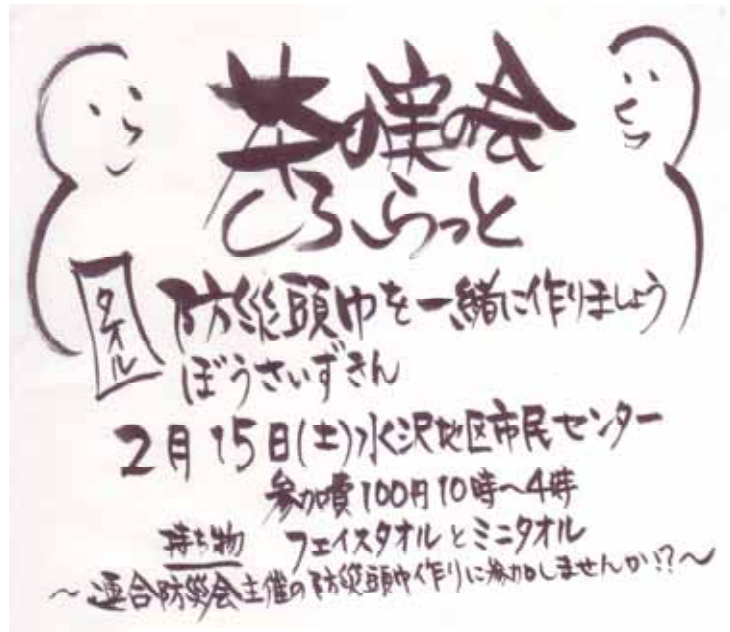 茶の実の会
しろふらっと
タオル
防災頭巾を一緒に作りましょう
ぼうさいずきん
2月15日(土)水沢地区市民センター
参加費100円10時〜4時
持ち物 フェイスタオルとミニタオル
〜連合防災会主催の防災頭巾作りに参加しませんか!?〜